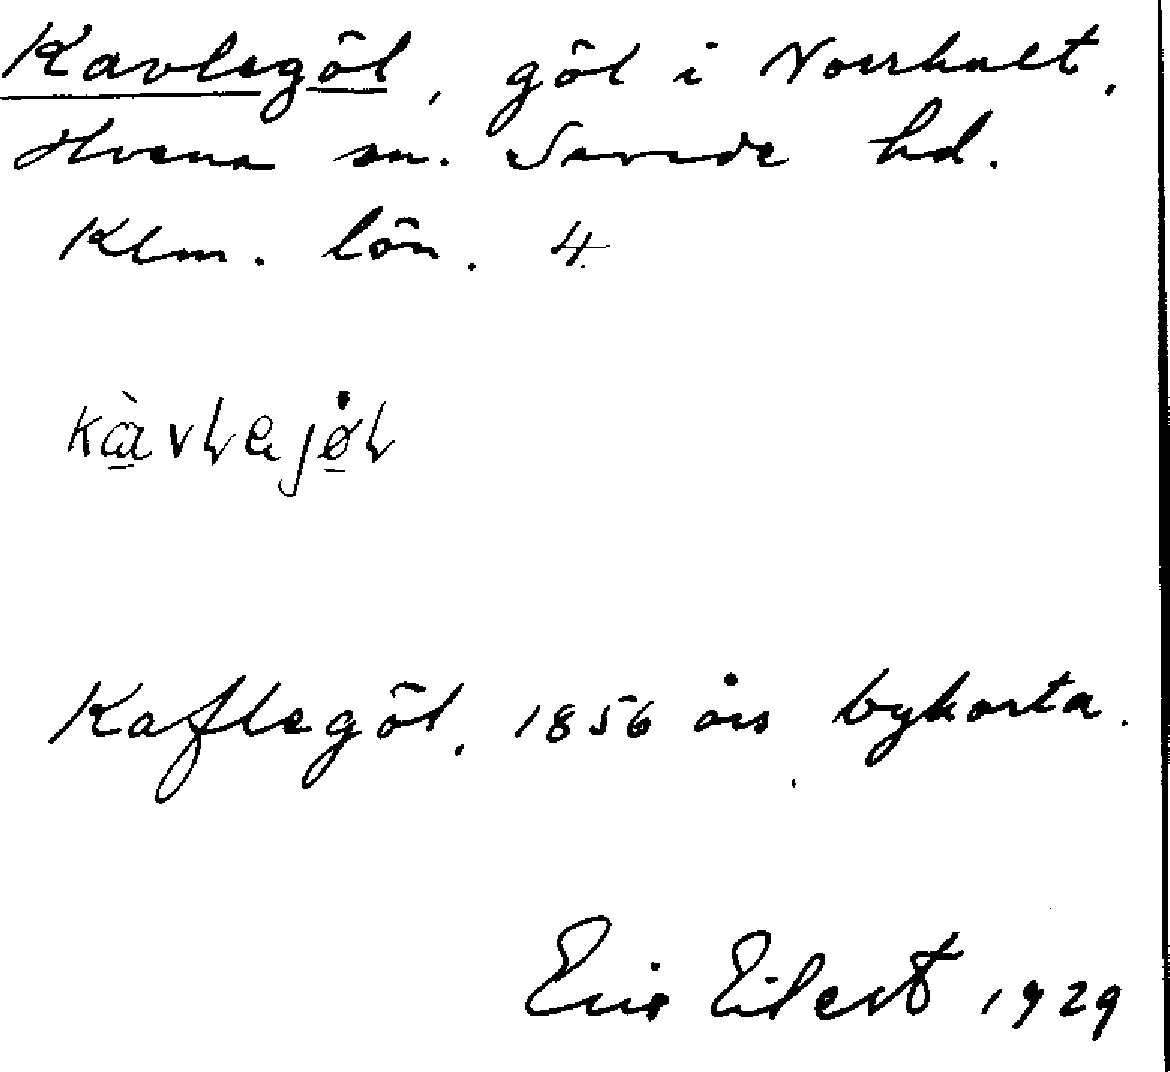 Kavlegöl, göl i Norrhult,
Hvena sn. Sevede hd.
Klm. län. 4.
Kaflegöl, 1856 års bykarta.
Eric Eilert 1929